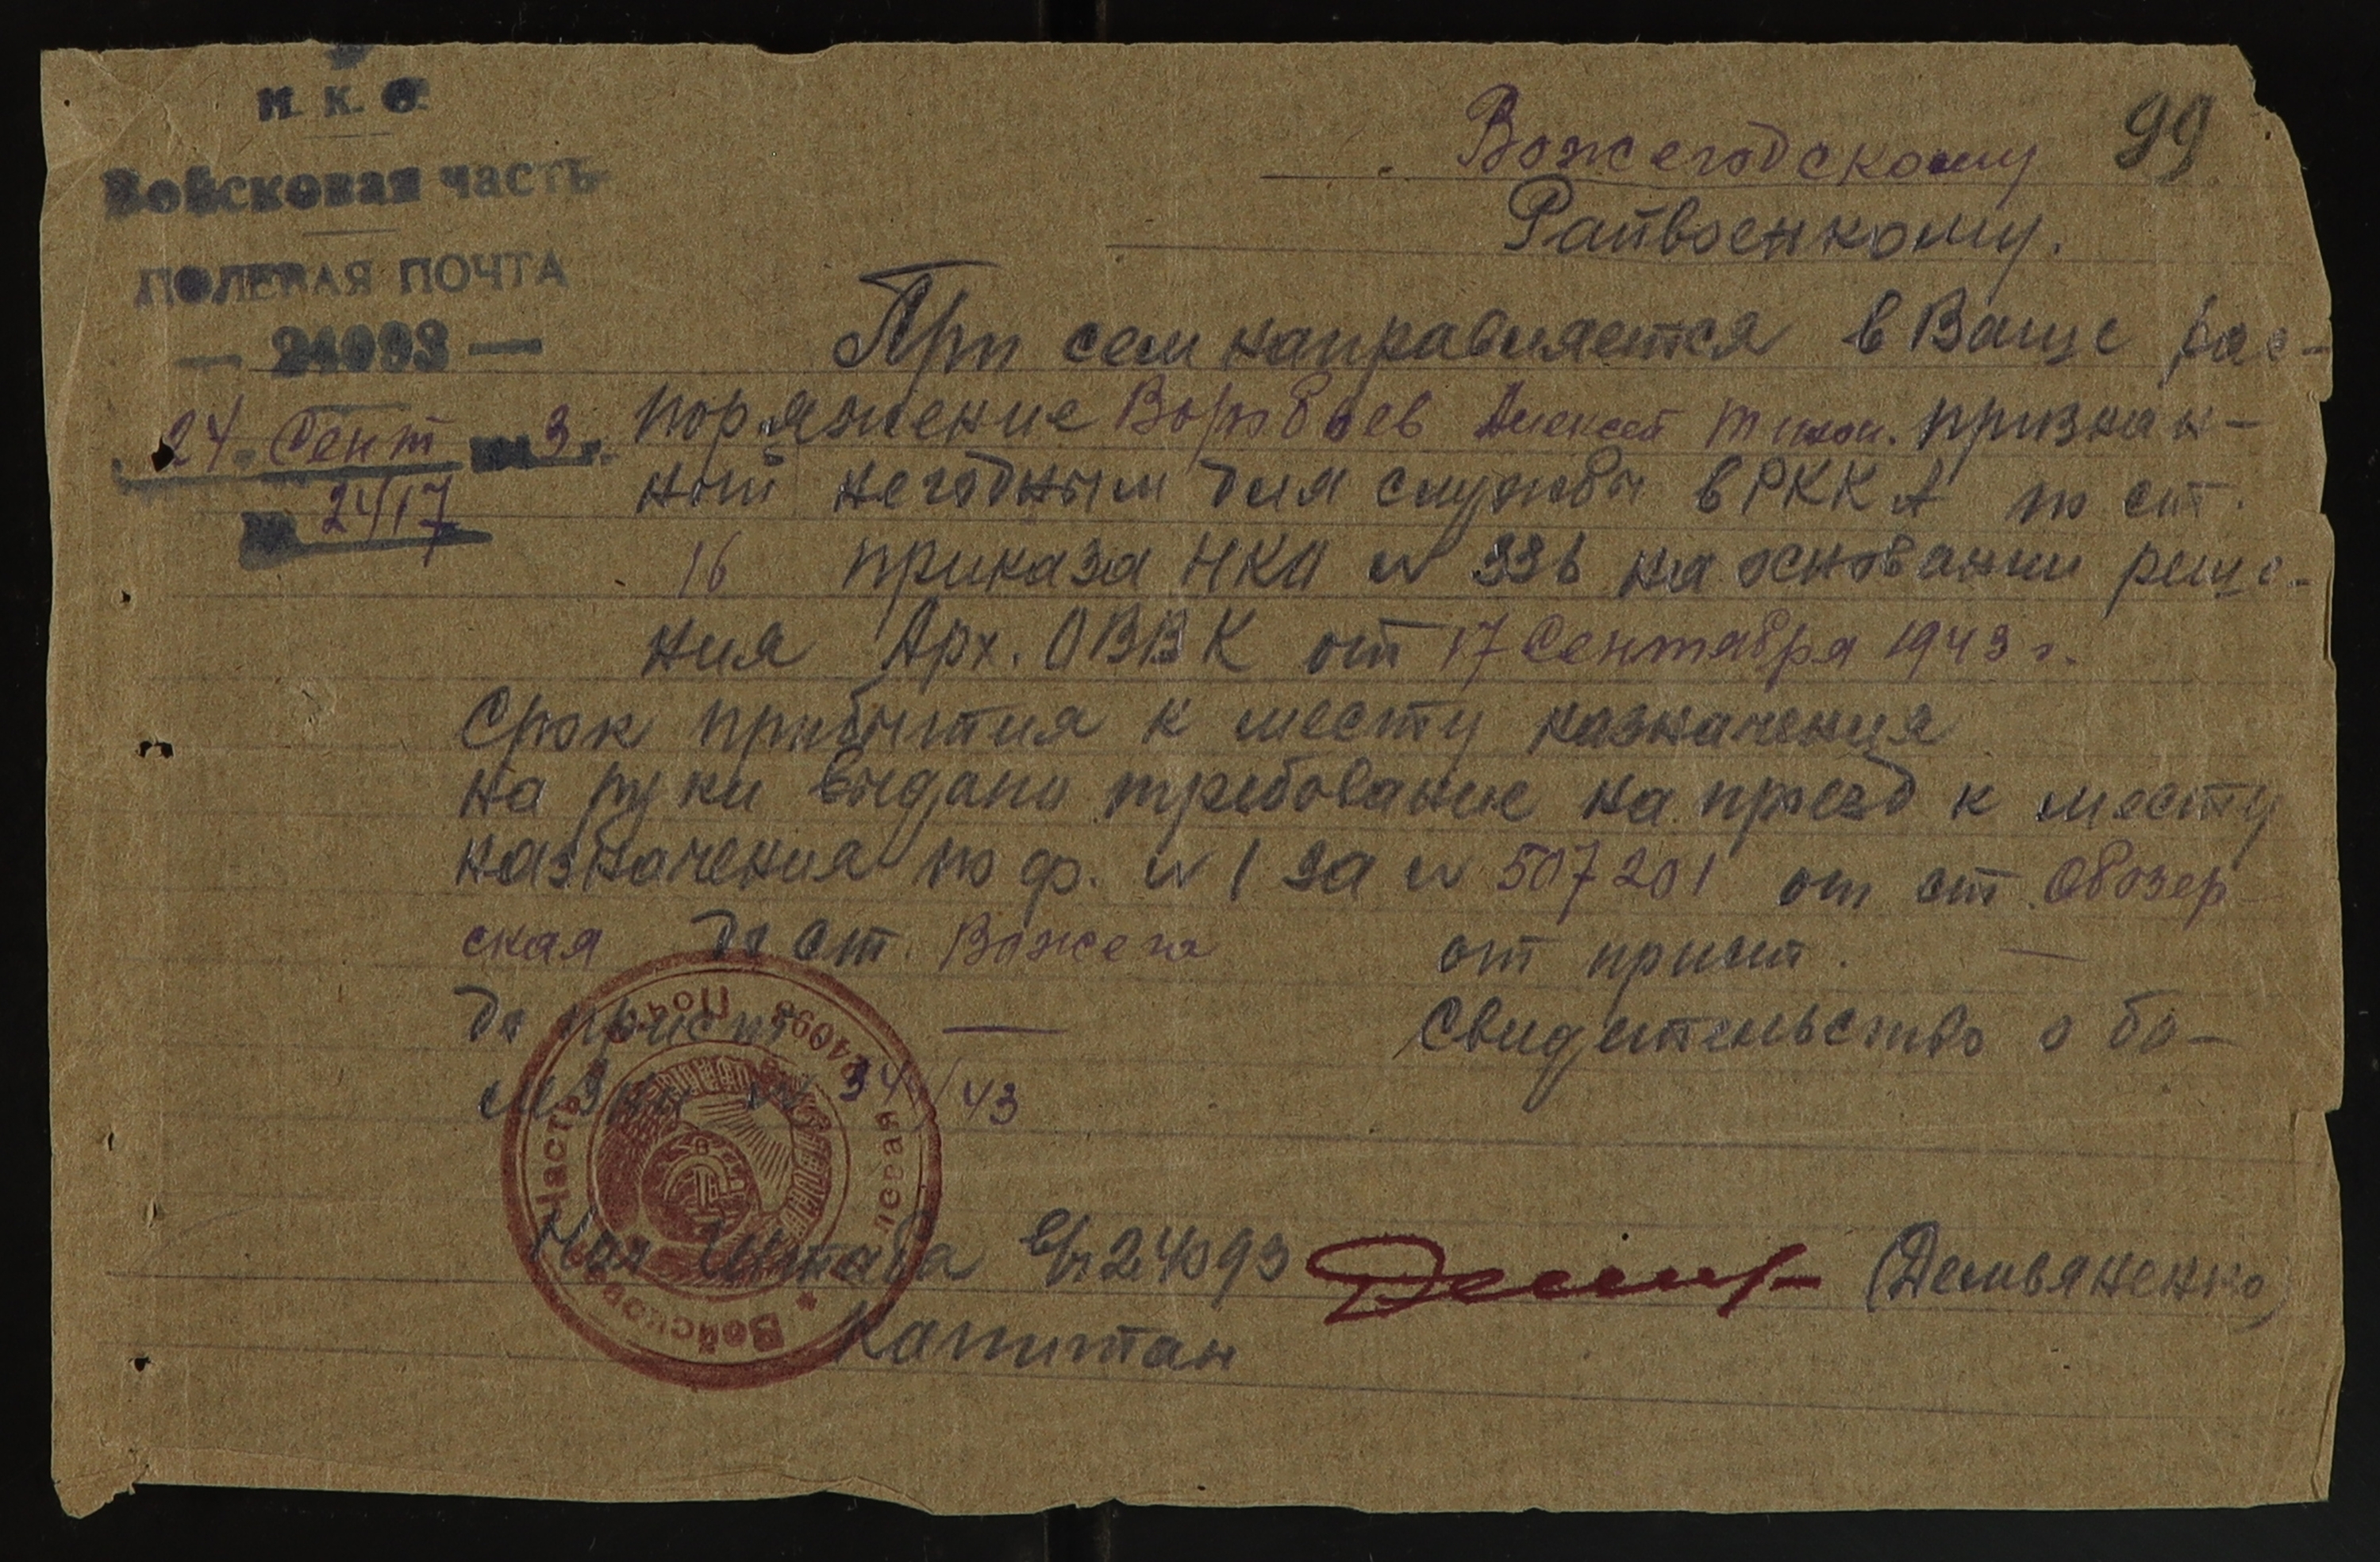 Н. К. О.
Войсковая часть
ПОЛЕВАЯ ПОЧТА
— 24093 —
24 Сент 3
2417
99
Вожегодскому
Райвоенкому.
При сем направляется в Ваше рас-
поряжение Воробьев Алексей Тихон. признан-
ный негодным для службы в РККА по ст.
16 приказа НКО № 336 на основании реше-
ния Арх. ОВВК от 17 Сентября 1943 г.
Срок прибытия к месту назначения
на руки выдано требование на проезд к месту
назначения по ф. № 1 за № 507201 от ст. Обозер-
ская до ст. Вожега от прист. —
до прист — Свидетельство о бо-
лезни № 34/43
Нач Штаба в/ч 24093 (Демьяненко)
Капитан
Войсковая Часть Полевая Почта 24093